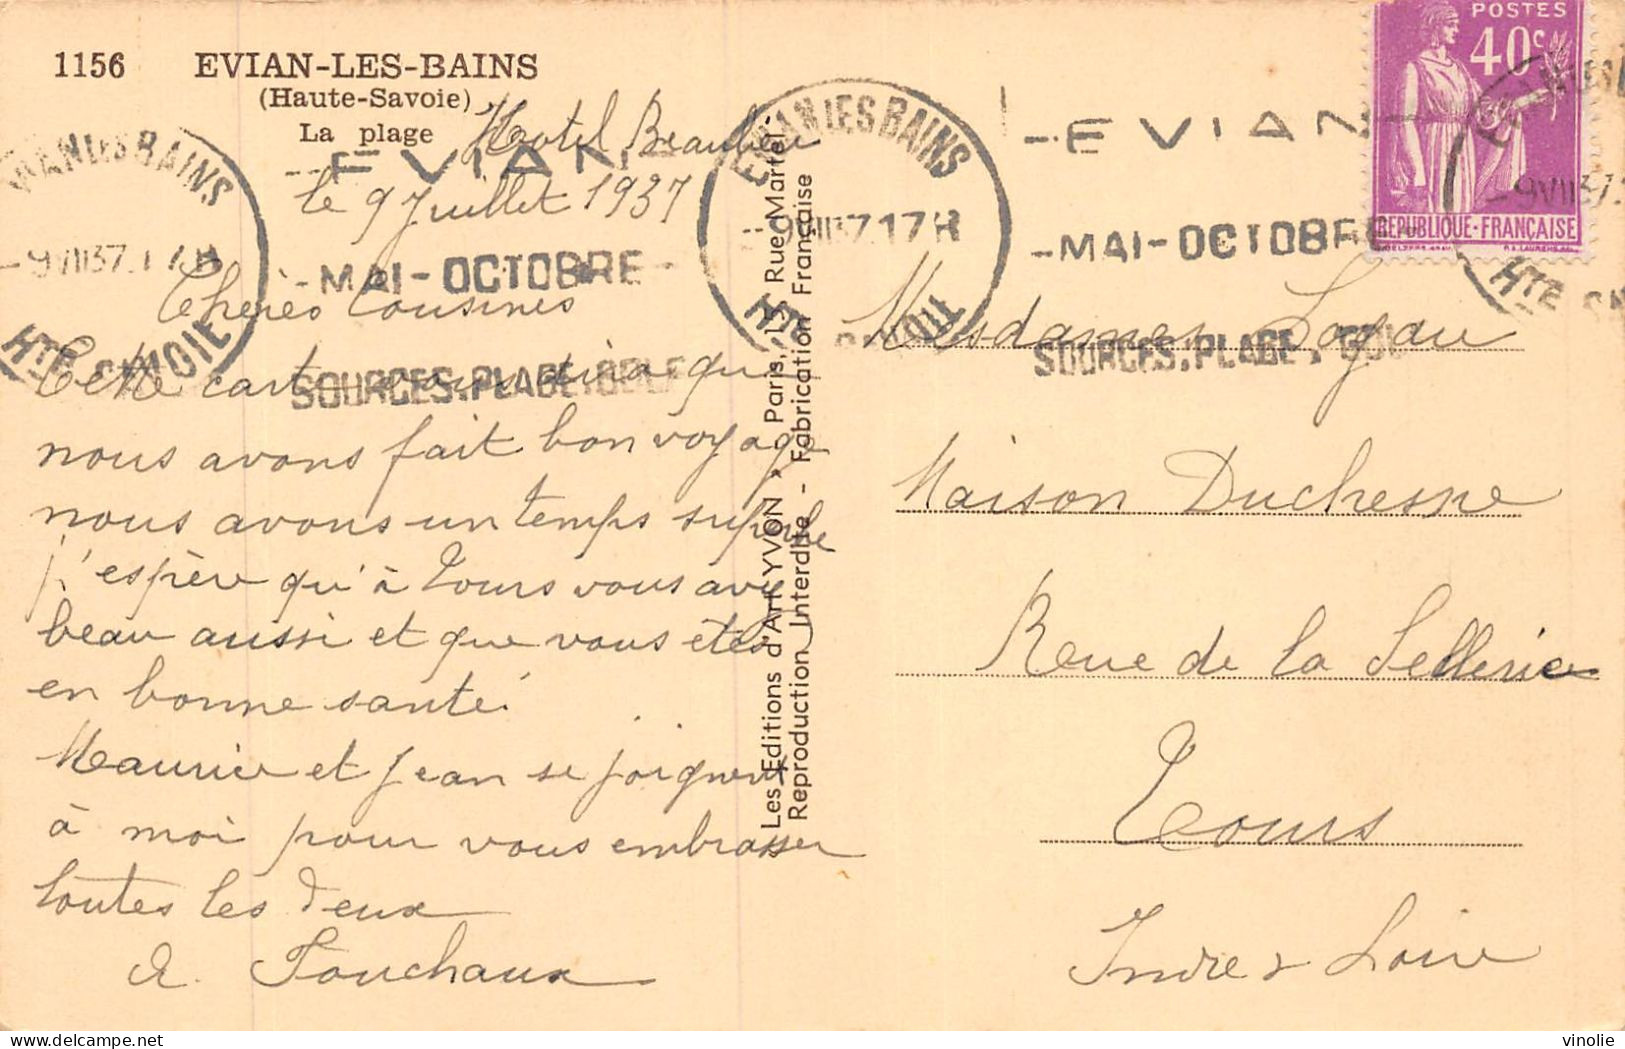 1156 EVIAN-LES-BAINS
(Haute-Savoie)
La plage
Hotel Beaulieu
le 9 Juillet 1937
Chères Cousines
Cette carte vous dira que
nous avons fait bon voyage
nous avons un temps superbe
j'espère qu'à Tours vous avez
beau aussi et que vous êtes
en bonne santé.
Maurice et Jean se joignent
à moi pour vous embrasser
toutes les deux
A. Touchaux
EVIAN LES BAINS
-9 VII 37.17H
HTE SAVOIE
EVIAN
-MAI-OCTOBRE-
SOURCES.PLAGE.GOLF
Les Editions d'Art YVON - Paris, 15 Rue Martel -
Reproduction Interdite - Fabrication Française
EVIAN LES BAINS
-9 VII 37.17H
HTE SAVOIE
EVIAN
-MAI-OCTOBRE
SOURCES.PLAGE.GOL
POSTES
40c
REPUBLIQUE-FRANÇAISE
EVIAN LES
-9 VII 37.
HTE SA
Mesdames
Maison Duchesne
Reue de la Sellerie
Tours
Indre & Loire
vinolie © delcampe.net